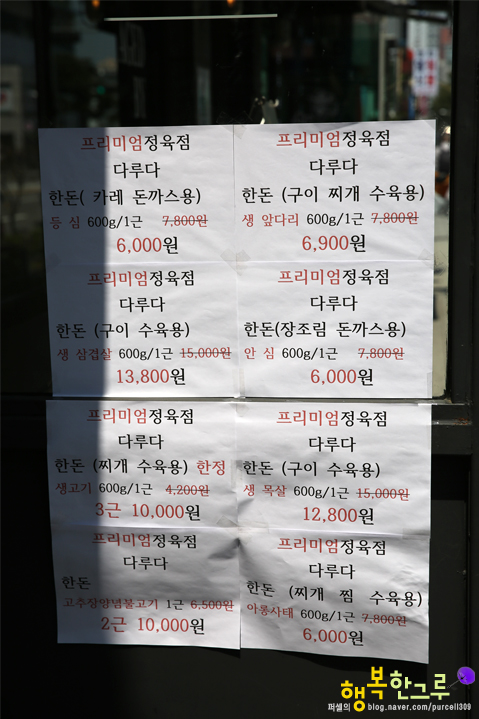 프리미엄정육점
다루다
한돈( 카레 돈까스용)
등 심 600g/1근 7,800원
6,000원
프리미엄정육점
다루다
한돈 (구이 찌개 수육용)
생 앞다리 600g/1근 7,800원
6,900원
프리미엄정육점
다루다
한돈 (구이 수육용)
생 삼겹살 600g/1근 15,000원
13,800원
프리미엄정육점
다루다
한돈(장조림 돈까스용)
안 심 600g/1근 7,800원
6,000원
프리미엄정육점
다루다
한돈 (찌개 수육용) 한정
생고기 600g/1근 4,200원
3근 10,000원
프리미엄정육점
다루다
한돈 (구이 수육용)
생 목살 600g/1근 15,000원
12,800원
프리미엄정육점
다루다
한돈
고추장양념불고기 1근 6,500원
2근 10,000원
프리미엄정육점
다루다
한돈 (찌개 찜 수육용)
아롱사태 600g/1근 7,800원
6,000원
행복한그루
퍼셀의 blog.naver.com/purcell309